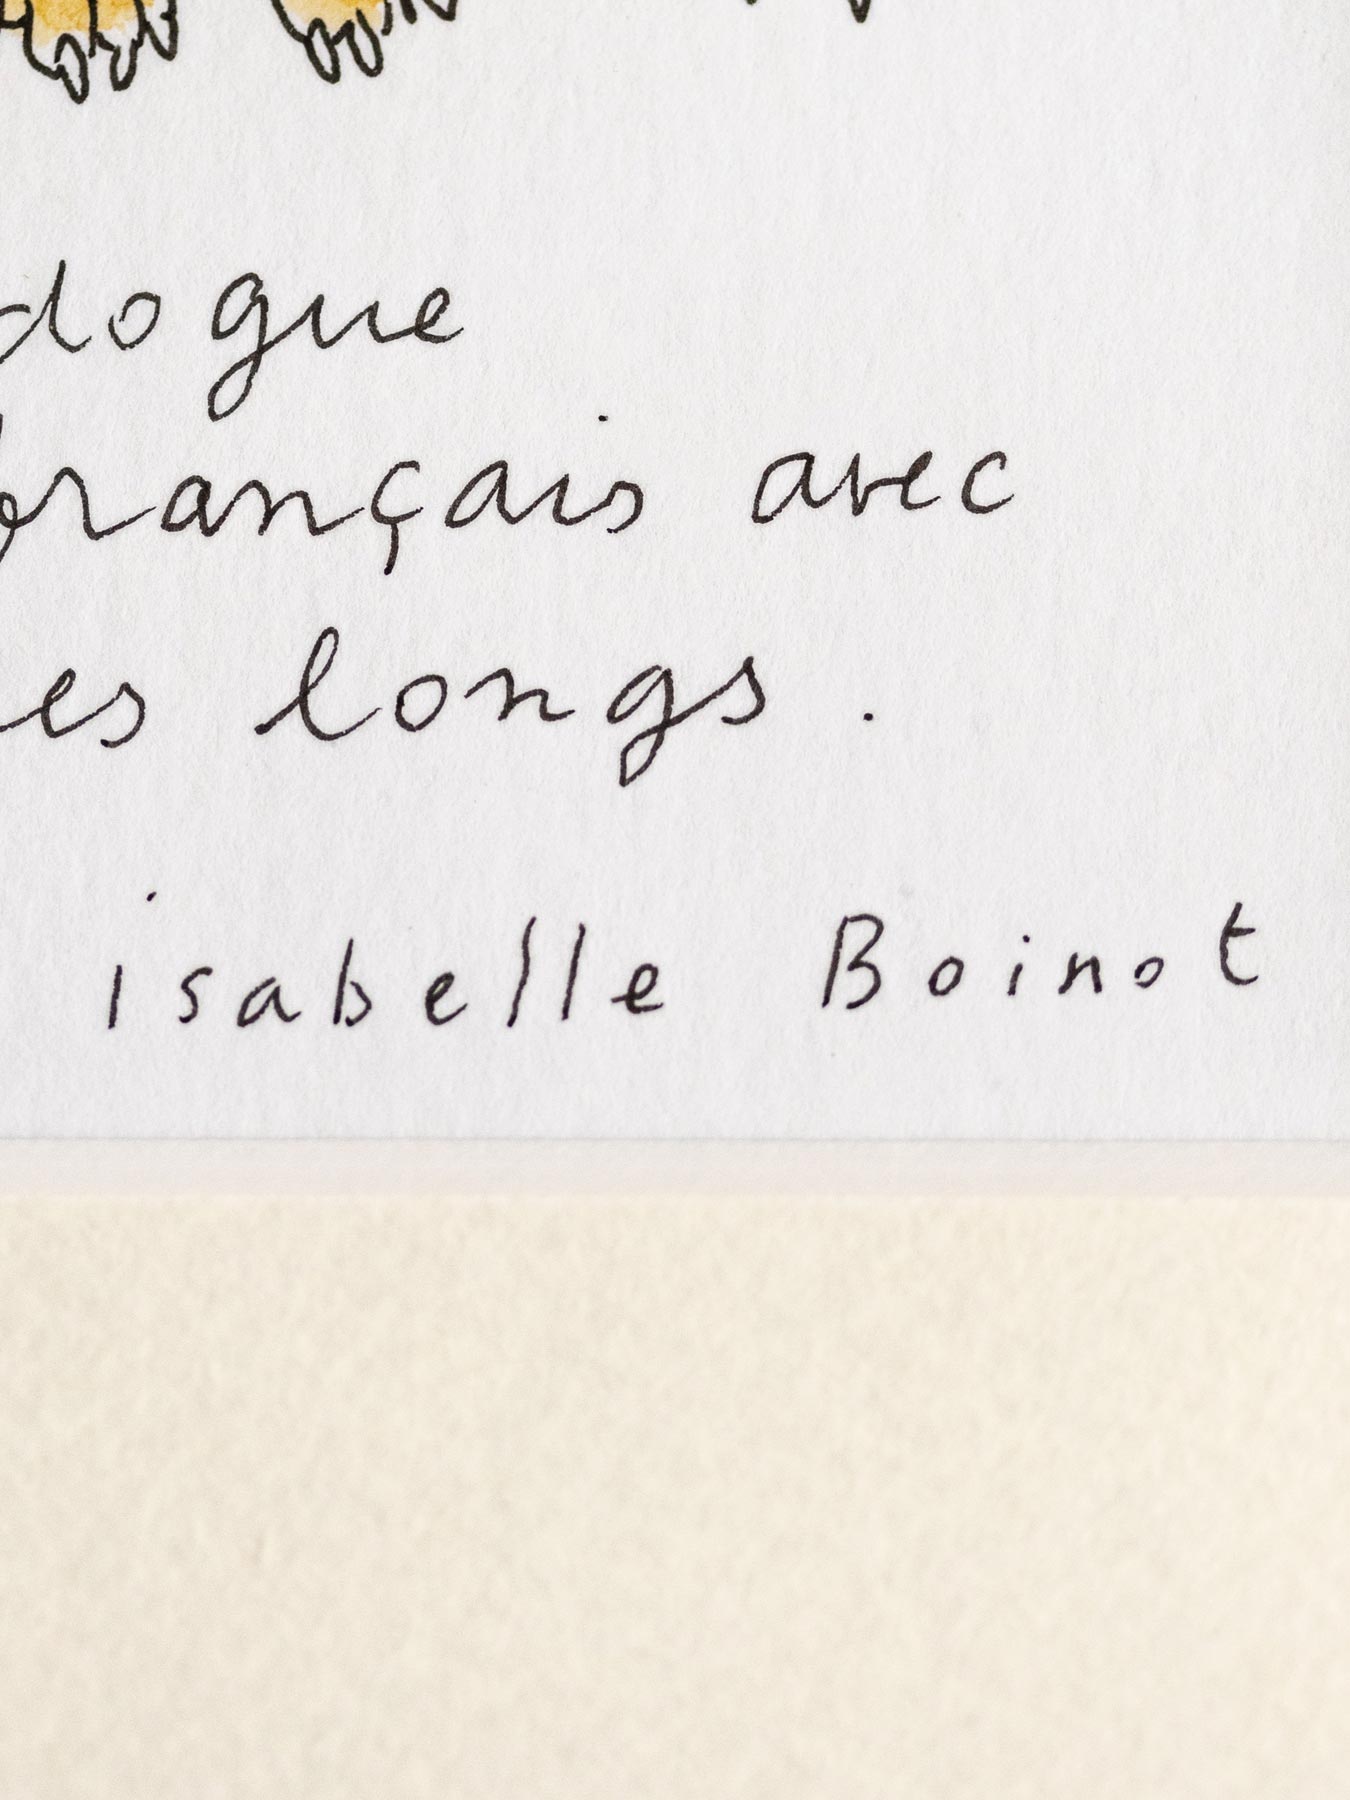 dogue
français avec
es longs.
isabelle Boinot